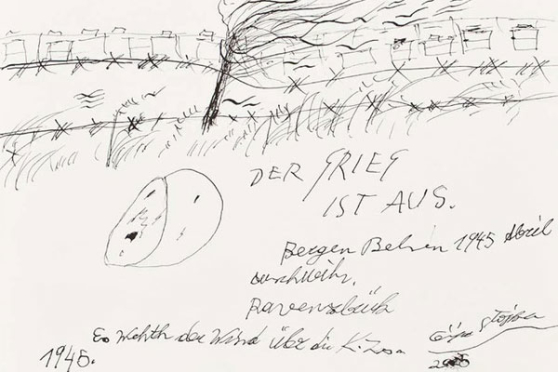 DER GRIEG
IST AUS.
Bergen Belsen 1945 Abril
Auschwihz.
Ravensbük
Es Wehth der Wind über die K.Z.
1945.
Ceija Stojka